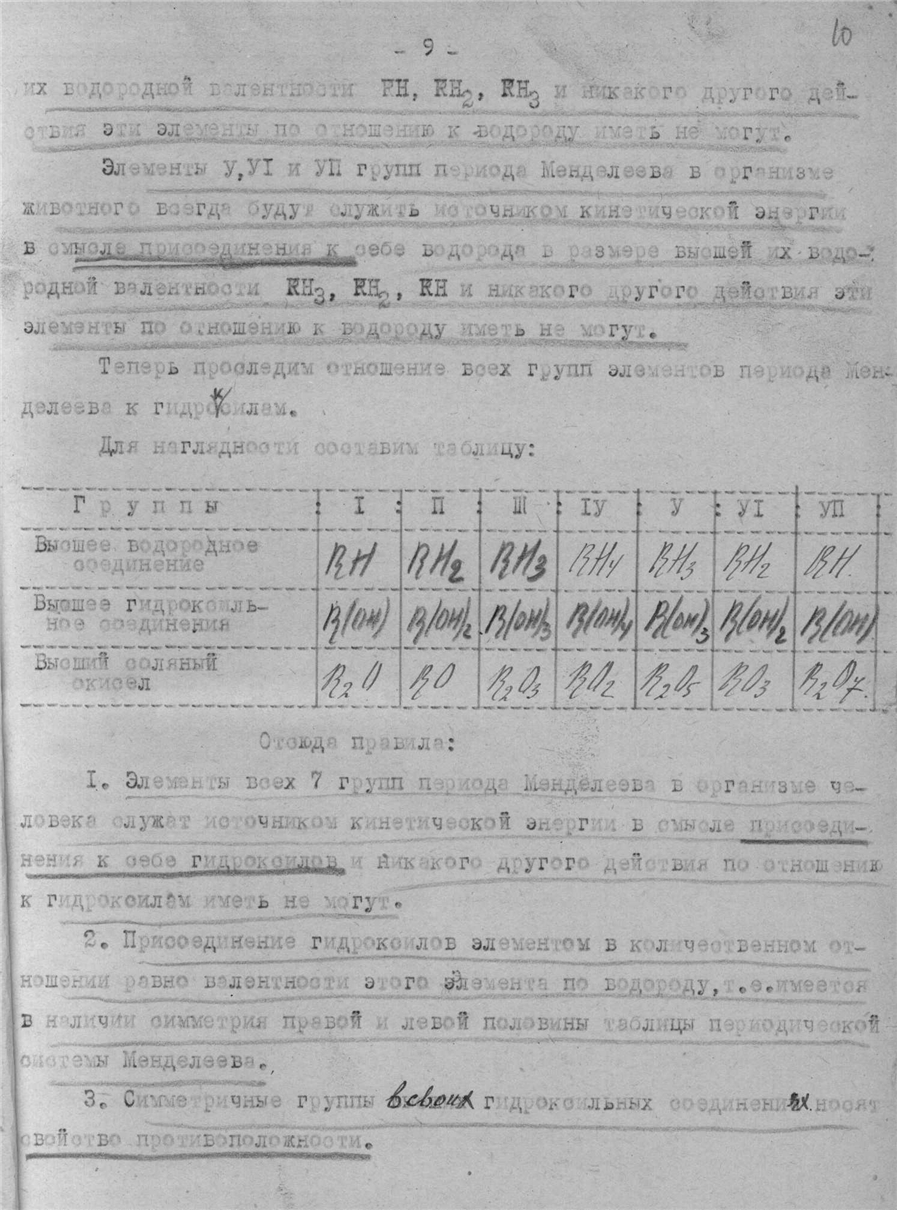 10
- 9 -
их водородной валентности RH, RH2, RH3 и никакого другого дей-
ствия эти элементы по отношению к водороду иметь не могут.
Элементы У, УI и УП групп периода Менделеева в организме
животного всегда будут служить источником кинетической энергии
в смысле присоединения к себе водорода в размере высшей их водо-
родной валентности RH3, RH2, RH и никакого другого действия эти
элементы по отношению к водороду иметь не могут.
Теперь проследим отношение всех групп элементов периода Мен-
делеева к гидроксилам.
Для наглядности составим таблицу:
Группы : I : П : Ш : IУ : У : УI : УП :
Высшее водородное соединение RH RH2 RH3 RH4 RH3 RH2 RH.
Высшее гидроксиль-
ное соединения R(OH) R(OH)2 R(OH)3 R(OH)4 R(OH)3 R(OH)2 R(OH)
Высший соляный окисел R2O RO R2O3 RO2 R2O5 RO3 R2O7.
Отсюда правила:
I. Элементы всех 7 групп периода Менделеева в организме че-
ловека служат источником кинетической энергии в смысле присоеди-
нения к себе гидроксилов и никакого другого действия по отношению
к гидроксилам иметь не могут.
2. Присоединение гидроксилов элементом в количественном от-
ношении равно валентности этого элемента по водороду, т.е.имеется
в наличии симметрия правой и левой половины таблицы периодической
системы Менделеева.
3. Симметричные группы в своих гидроксильных соединениях носят
свойство противоположности.